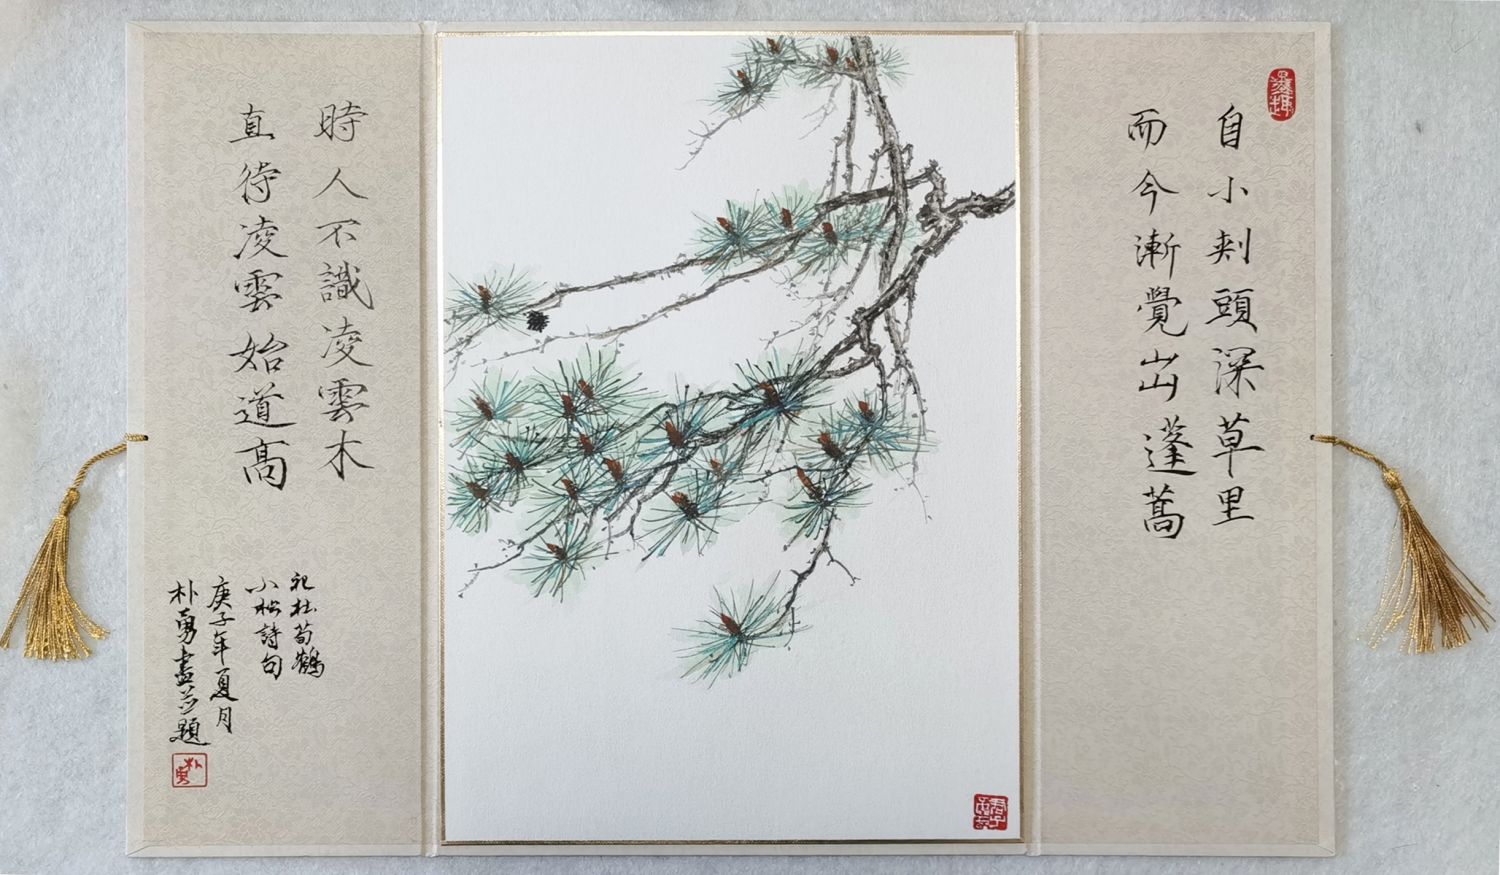 自小刺頭深草里
而今漸覺出蓬蒿
時人不識凌雲木
直待凌雲始道高
記杜荀鶴
小松詩句
庚子年夏月
朴勇畫并題
朴勇